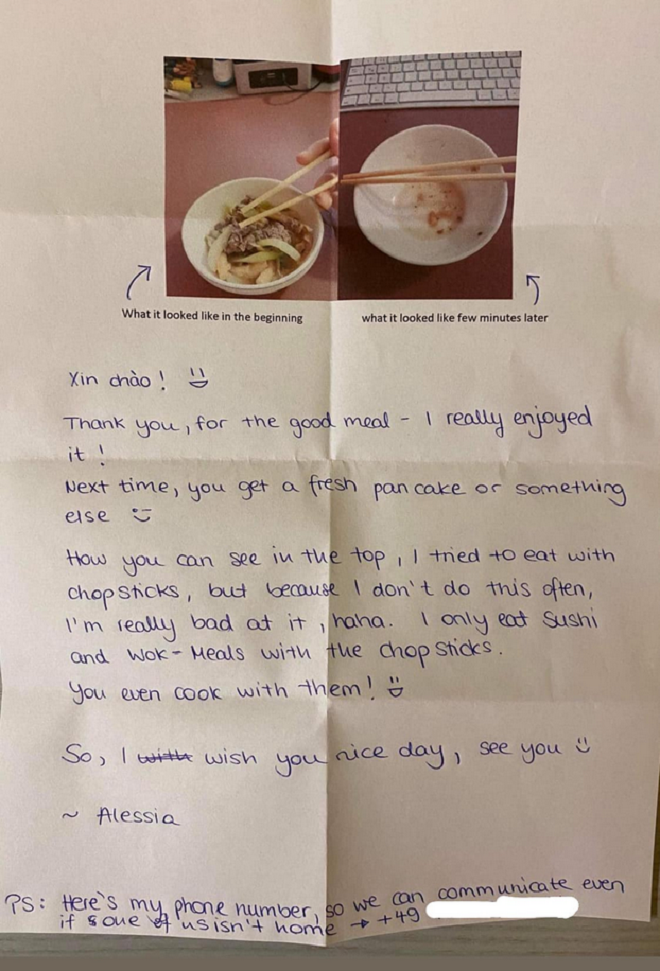 What it looked like in the beginning
what it looked like few minutes later
Xin chào !
Thank you, for the good meal - I really enjoyed
it !
Next time, you get a fresh pan cake or something
else
How you can see in the top, I tried to eat with
chopsticks, but because I don't do this often,
I'm really bad at it, haha. I only eat Sushi
and Wok-Meals with the chopsticks.
You even cook with them!
So, I with wish you nice day, see you
~ Alessia
PS: Here's my phone number, so we can communicate even
if some of us isn't home → +49